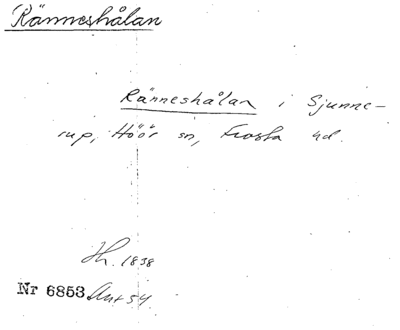 Ränneshålan
Ränneshålan i Sjunne-
rup, Höör sn, Frosta hd.
Jh. 1838
Nr 6853 Ant 54.